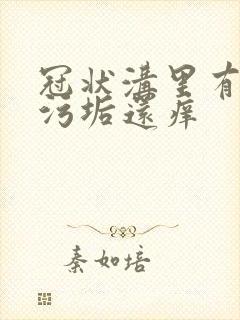 冠状溝里有
污垢還痒
秦如培